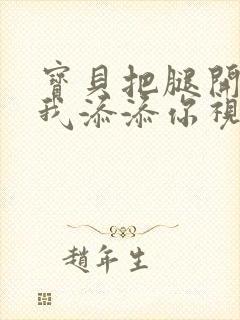 寶貝把腿開
我添添你視
趙年生